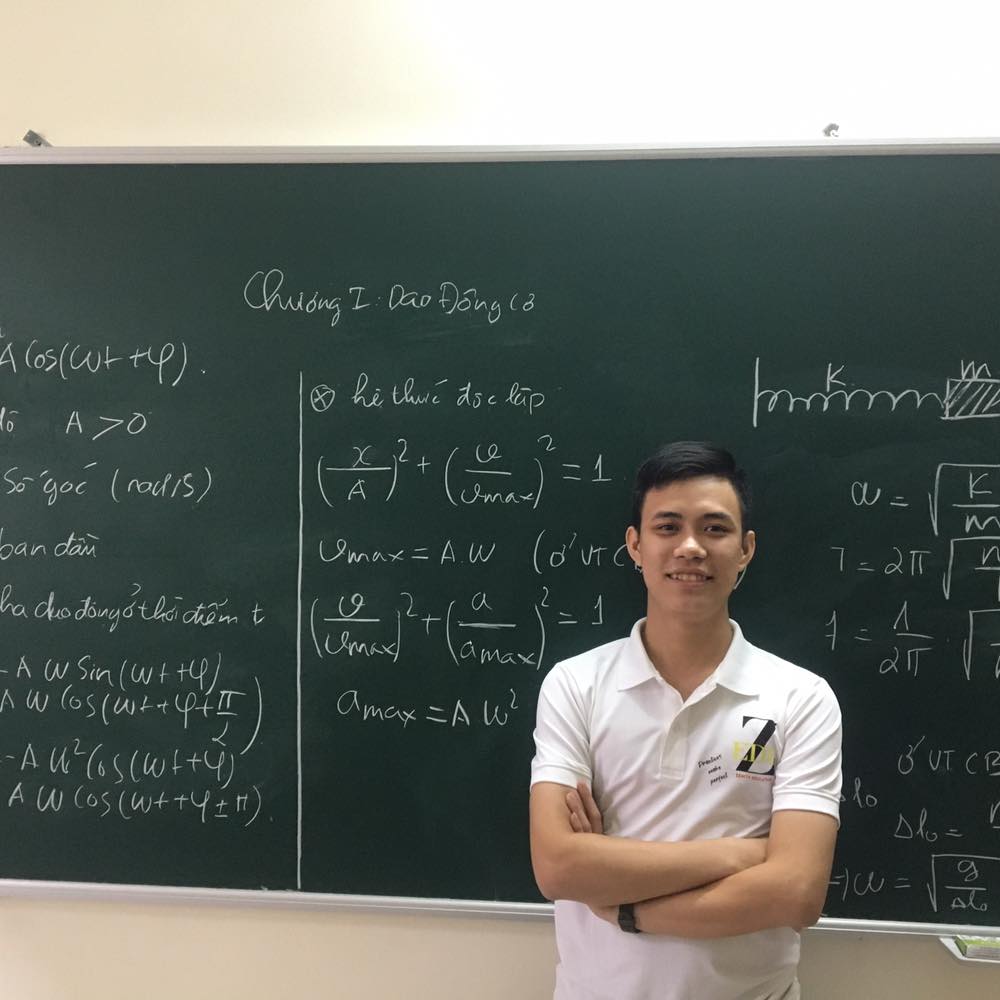 Chương I: Dao Động cơ
A cos(ωt + φ).
A > 0
Số góc (rad/s)
ban đầu
pha dao động ở thời điểm t
- A ω sin(ωt + φ)
A ω cos(ωt + φ + π/2)
- A ω² cos(ωt + φ)
A ω cos(ωt + φ ± π).
⊗ hệ thức độc lập
(x/A)² + (v/vmax)² = 1
vmax = A.ω (ở VTC
(v/vmax)² + (a/amax)² = 1
amax = A ω²
K
m
ω = √(K/m
T = 2π √(m
f = 1/2π · √
Ở VTCB
Δl₀
Δl₀ =
=> ω = √(g/Δl₀
Z
EDU
Practice
make
perfect